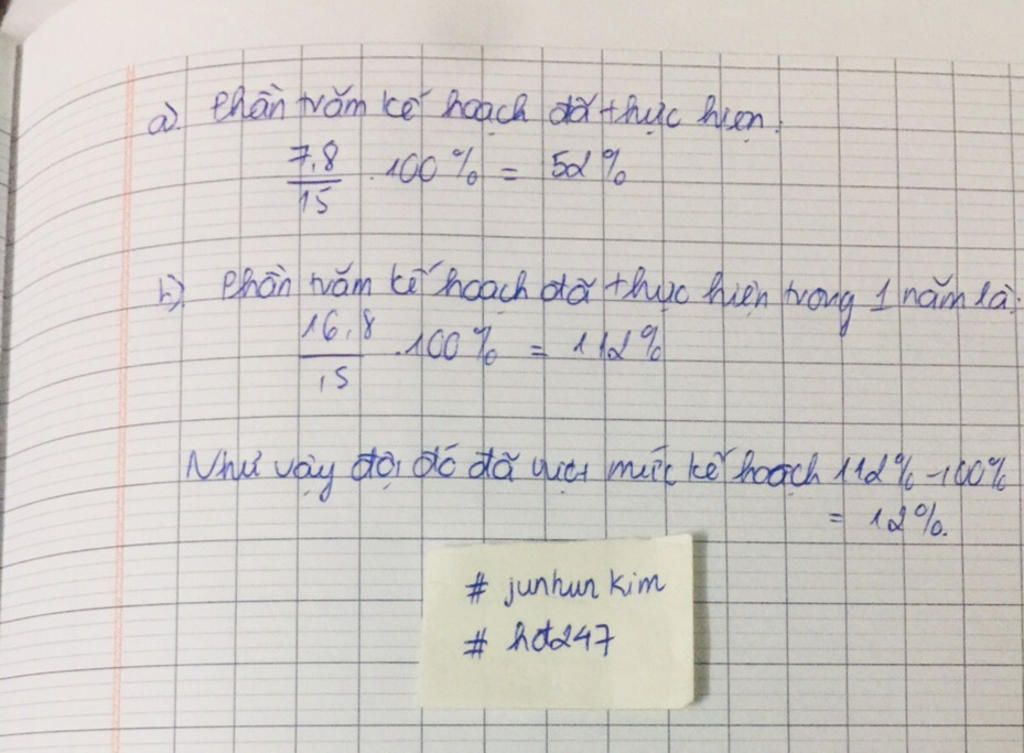 a) Phần trăm kế hoạch đã thực hiện.
7,8
15
. 100% = 52%
b) Phần trăm kế hoạch đã thực hiện trong 1 năm là:
16,8
15
. 100% = 112%
Như vậy đội đó đã vượt mức kế hoạch 112% - 100%
= 12%.
# junhun kim
# hd247